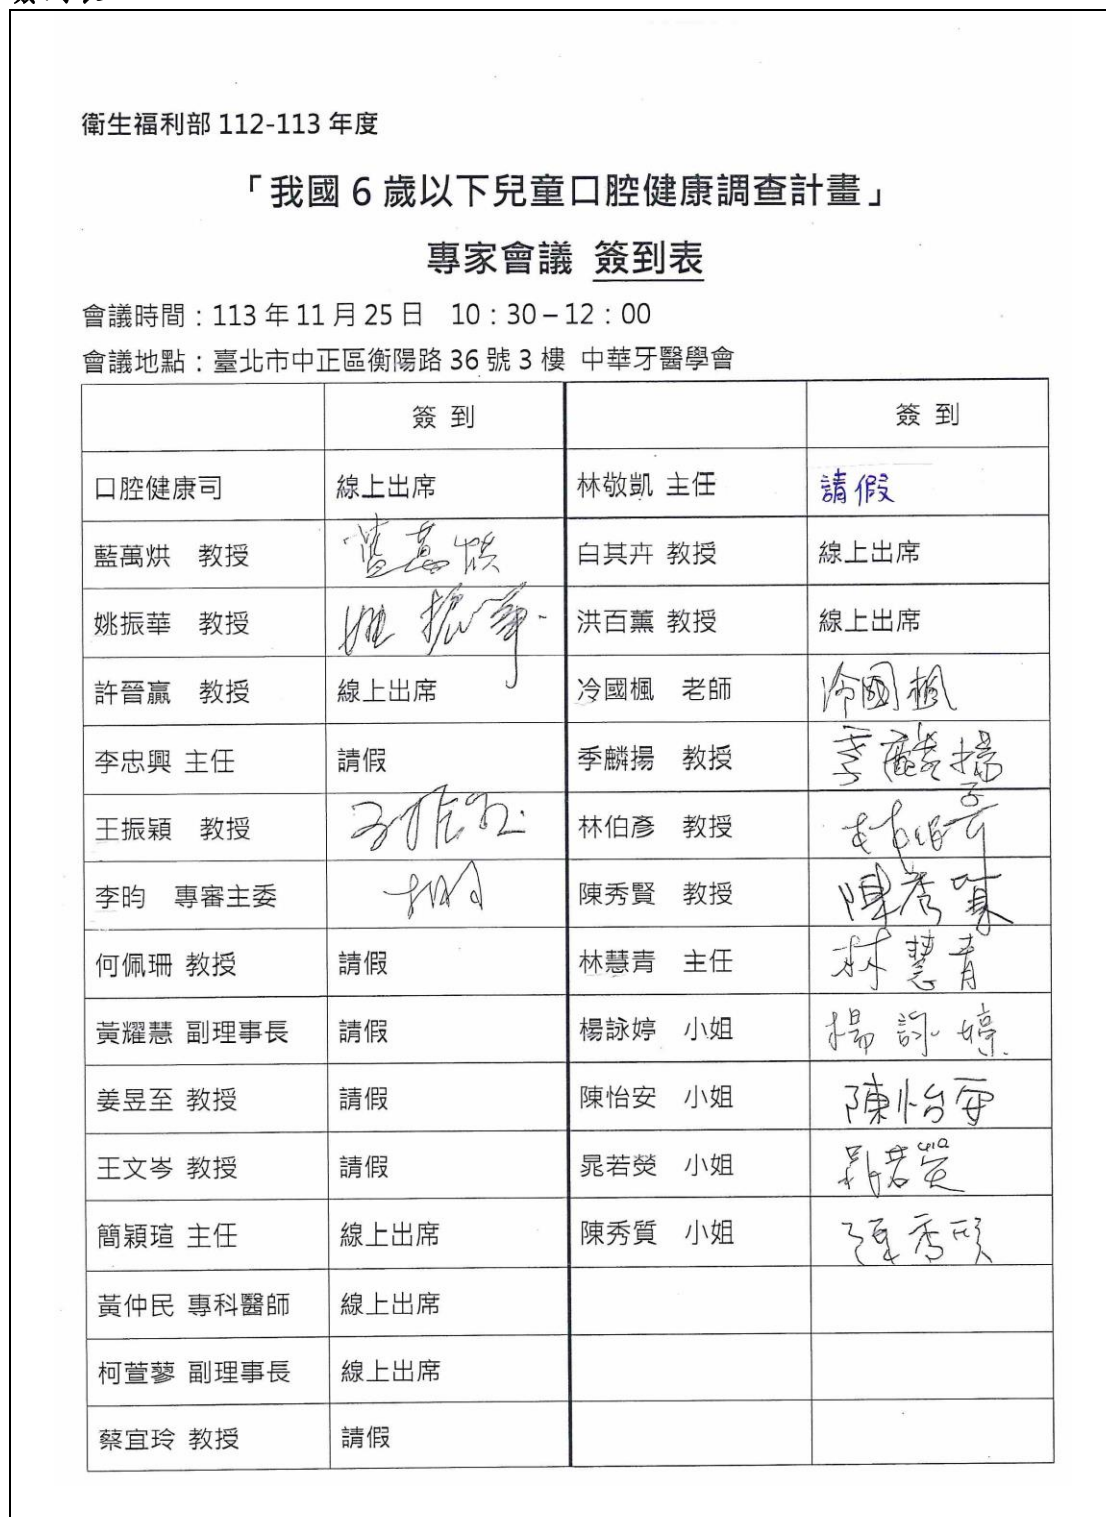 衛生福利部 112-113 年度
「我國 6 歲以下兒童口腔健康調查計畫」
專家會議 簽到表
會議時間：113 年 11 月 25 日 10：30 – 12：00
會議地點：臺北市中正區衡陽路 36 號 3 樓 中華牙醫學會
簽 到 簽 到
口腔健康司 線上出席 林敬凱 主任 請假
藍萬烘 教授 藍萬烘 白其卉 教授 線上出席
姚振華 教授 姚振華 洪百薰 教授 線上出席
許晉贏 教授 線上出席 冷國楓 老師 冷國楓
李忠興 主任 請假 季麟揚 教授 季麟揚
王振穎 教授 林伯彥 教授 林伯彥
李昀 專審主委 陳秀賢 教授 陳秀賢
何佩珊 教授 請假 林慧青 主任 林慧青
黃耀慧 副理事長 請假 楊詠婷 小姐 楊詠婷
姜昱至 教授 請假 陳怡安 小姐 陳怡安
王文岑 教授 請假 晁若熒 小姐
簡穎瑄 主任 線上出席 陳秀質 小姐 陳秀質
黃仲民 專科醫師 線上出席
柯萱蓼 副理事長 線上出席
蔡宜玲 教授 請假